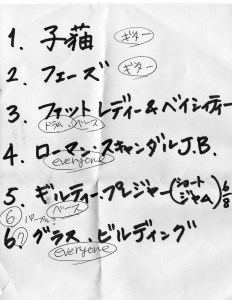 1. 子猫 ギター
2. フェーズ ギター
3. ファットレディー&ベイシティー
ドラム、ベース
4. ローマン・スキャンダルJ.B.
everyone
5. ギルティー・プレジャー(ショートジャム)6/8
⑥ ベース
6.⑦ グラス・ビルディング
everyone